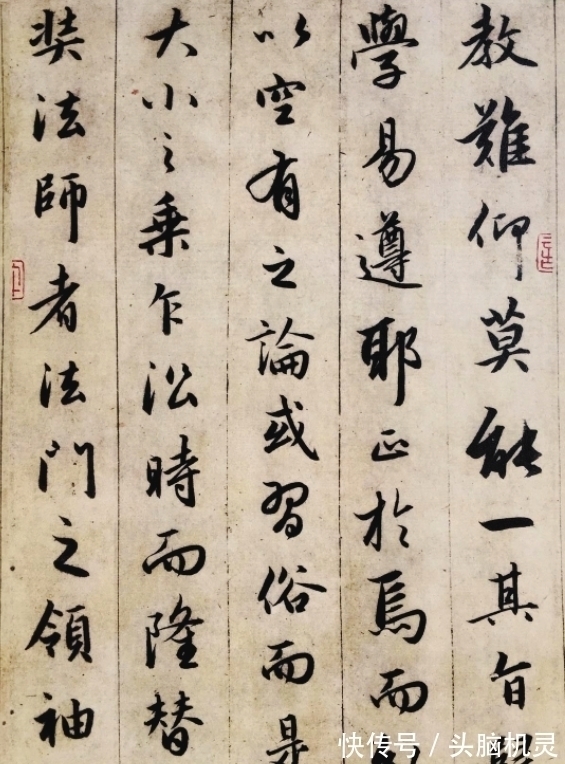 教難仰莫能一其旨
學易遵耶正於焉而
以空有之論或習俗而是
大小之乘乍沿時而隆替
奘法師者法門之領袖
快传号/头脑机灵